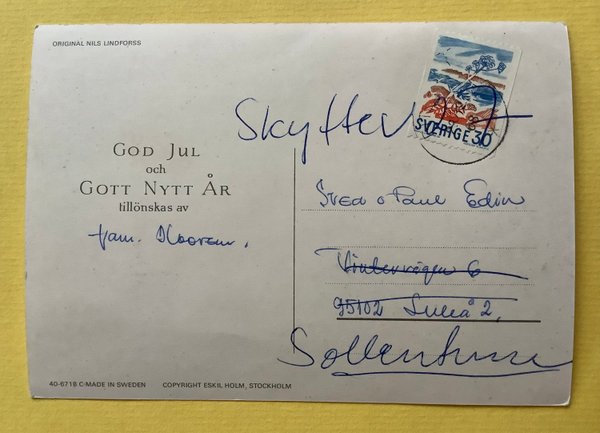 ORIGINAL NILS LINDFORSS
SVERIGE 30
GOD JUL
och
GOTT NYTT ÅR
tillönskas av
fam.
Svea o Paul Edin
Vintervägen 6
95102 Luleå 2,
Sollentuna
40-6718 C-MADE IN SWEDEN
COPYRIGHT ESKIL HOLM, STOCKHOLM